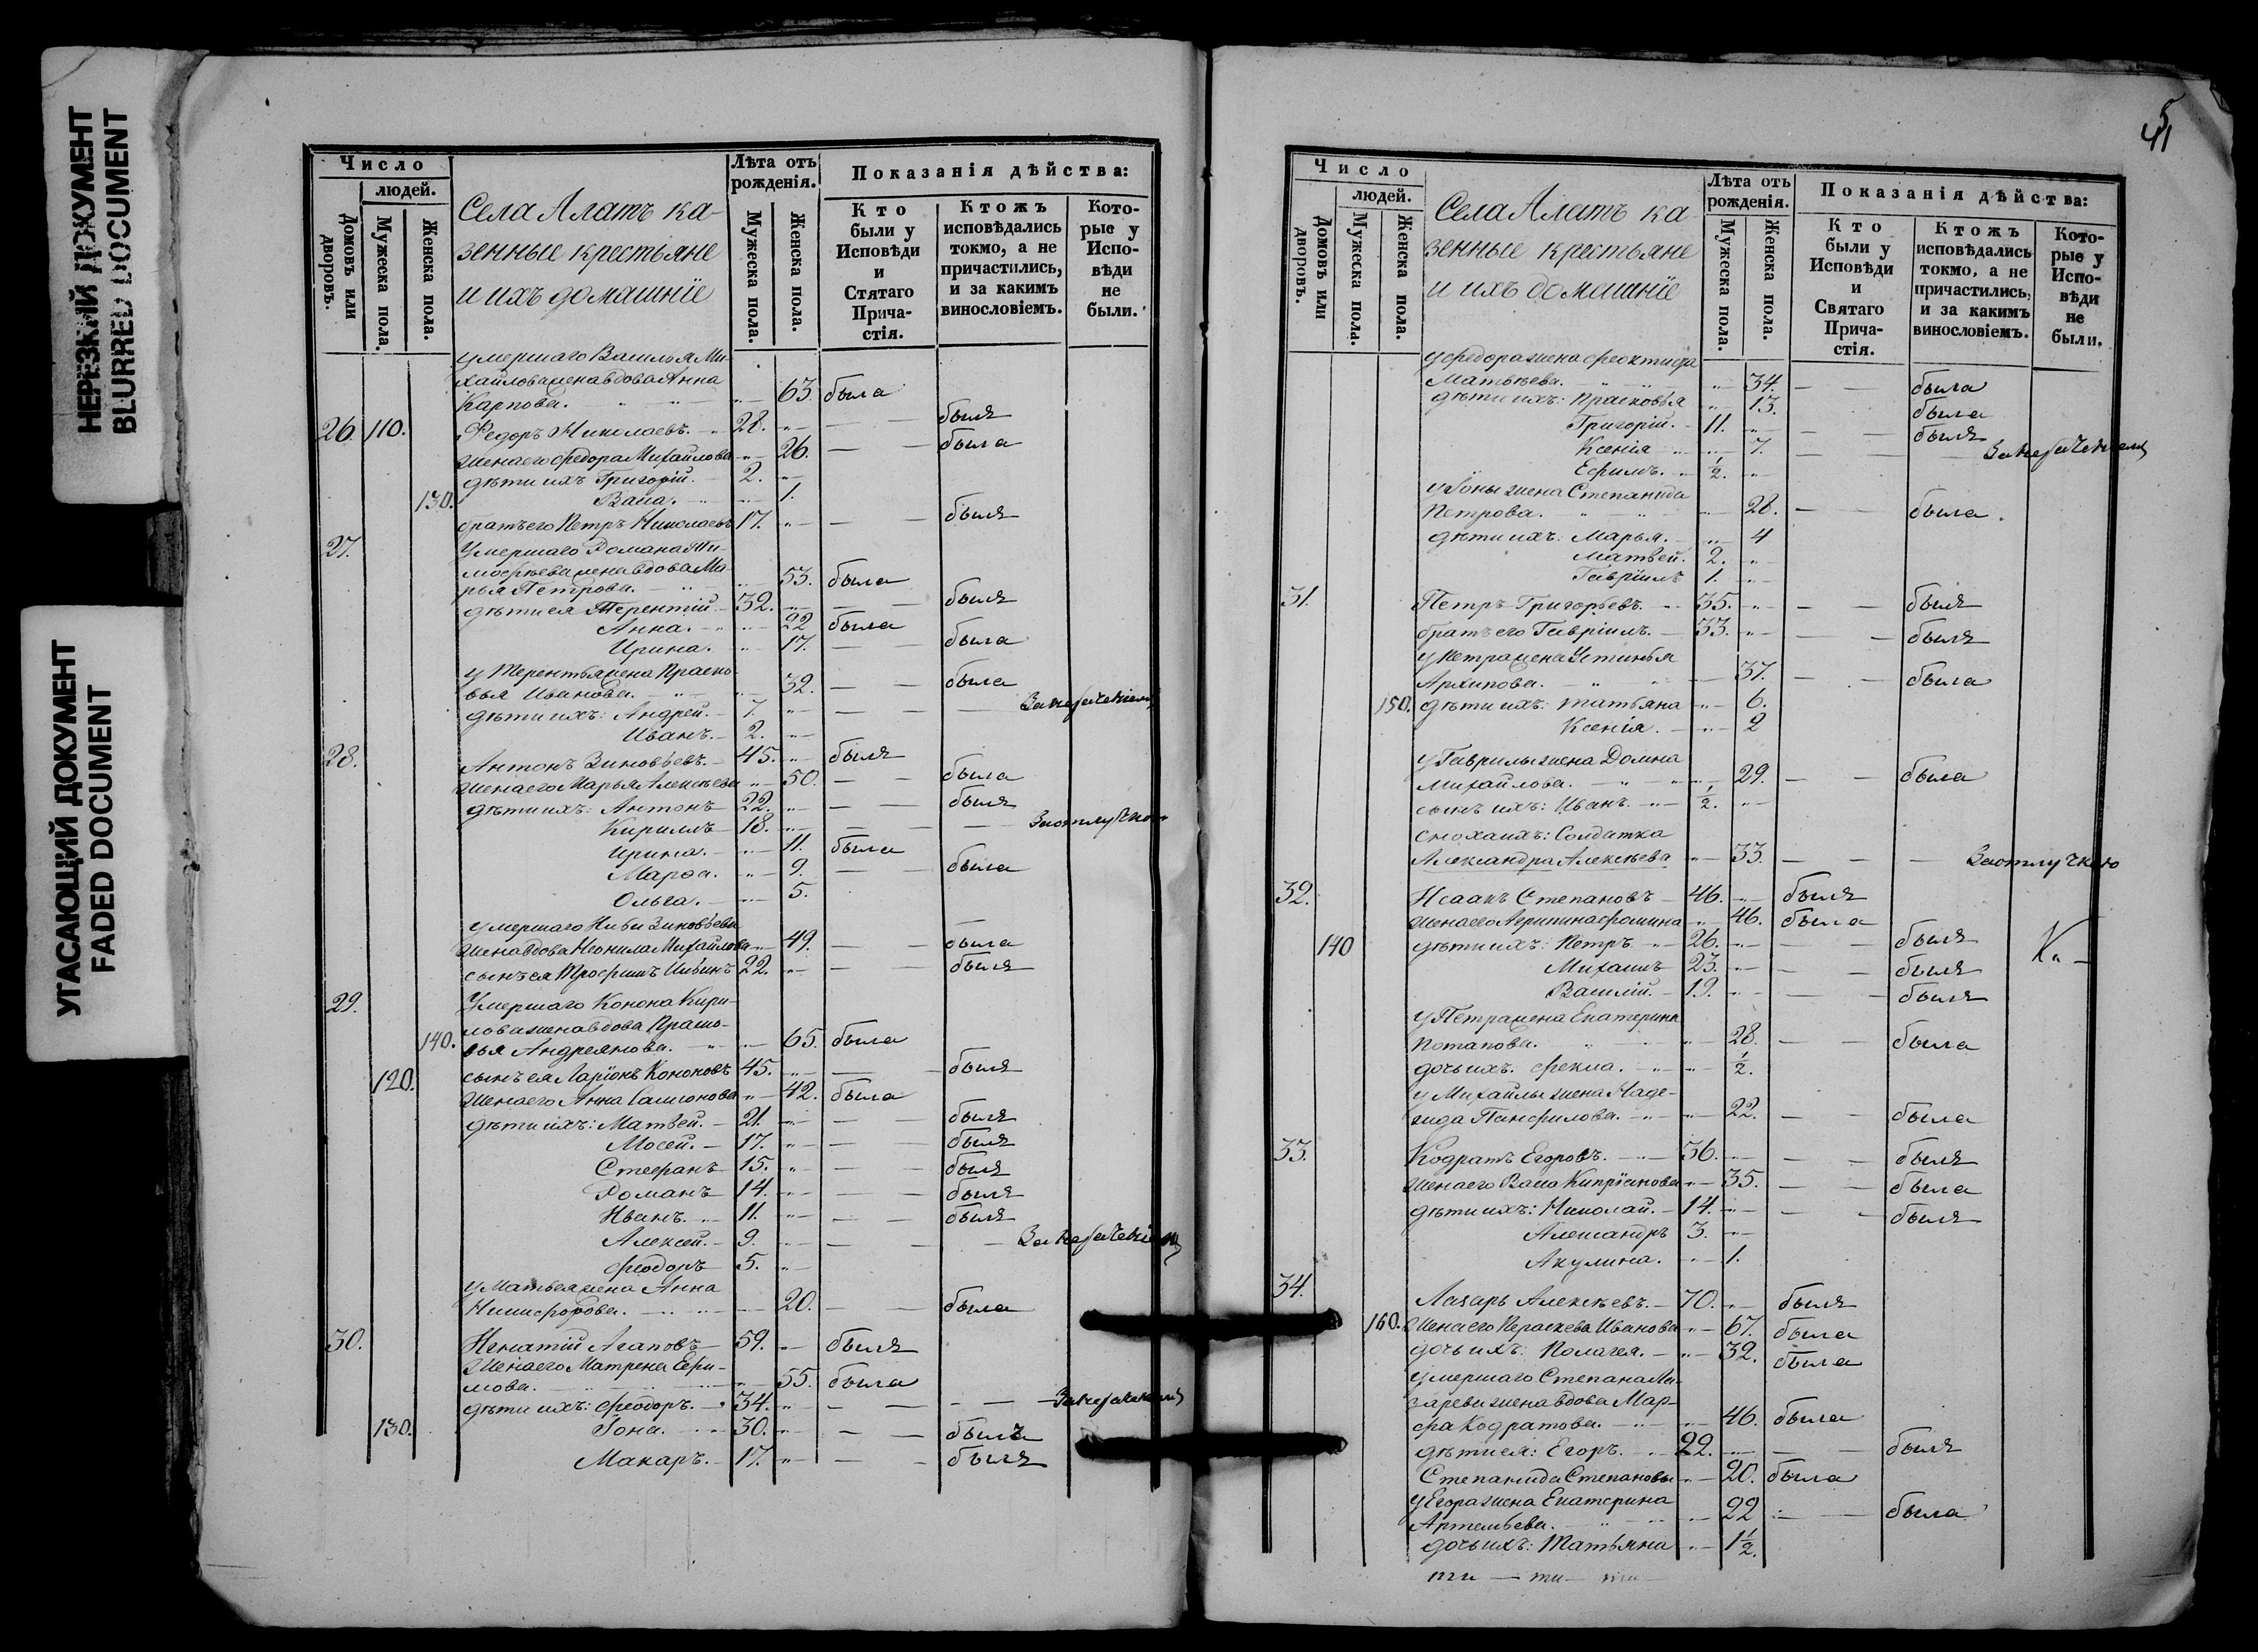 НЕРЕЗКИЙ ДОКУМЕНТ
BLURRED DOCUMENT
УГАСАЮЩИЙ ДОКУМЕНТ
FADED DOCUMENT
Число
людей.
Домовъ или дворовъ.
Мужеска пола.
Женска пола.
Села Алатъ ка-
зенные крестьяне
и ихъ домашніе
Лѣта отъ рожденія.
Мужеска пола.
Женска пола.
Показанія дѣйства:
Кто были у Исповѣди и Стятаго Прича-стія.
Ктожъ исповѣдались токмо, а не причастились, и за какимъ винословіемъ.
Кото-рые у Испо-вѣди не были.
умершаго Василья Ми-
хайлова жена вдова Анна
Карпова. 63. была
26. 110. Федоръ Николаевъ. 28. былъ
жена его Федора Михайлова 26. была
дѣти ихъ Григорій. 2.
130. Васа. 1.
братъ его Петръ Николаевъ 17. былъ
27. Умершаго Романа Ти-
мофѣева жена вдова Ма-
рья Петрова. 53. была
дѣти ея Терентій 32. былъ
Анна. 22 была
Ирина. 17. была
у Терентья жена Праско-
вья Иванова. 32. была
дѣти ихъ: Андрей. 7.
Иванъ. 2.
28. Антонъ Зиновьевъ. 45. былъ
жена его Марья Алексѣева 50. была
дѣти ихъ: Антонъ 22. былъ
Кириллъ 18. За отлучкою
Ирина. 11. была
Марѳа. 9. была
Ольга. 5.
умершаго Зиновьева
жена вдова Неонила Михайлова 49. была
сынъ ея Трофимъ 22. былъ
29. Умершаго Конона Кири-
лова жена вдова Праско-
140. вья Андреянова. 65. была
120. сынъ ея Ларіонъ Кононовъ 45. былъ
жена его Анна Самсонова 42. была
дѣти ихъ: Матвей. 21. былъ
Мосей. 17. былъ
Стефанъ 15. былъ
Романъ 14. былъ
Иванъ. 11. былъ
Алексей. 9.
Феодоръ 5.
у Матвея жена Анна
Никифорова. 20. была
30. Игнатій Агаповъ 59. былъ
жена его Матрена Ефи-
мова. 55. была
дѣти ихъ: Феодоръ. 34.
130. Іона. 30. былъ
Макаръ. 17. былъ
5
41
Число
людей.
Домовъ или дворовъ.
Мужеска пола.
Женска пола.
Села Алатъ ка-
зенные крестьяне
и ихъ домашніе
Лѣта отъ рожденія.
Мужеска пола.
Женска пола.
Показанія дѣйства:
Кто были у Исповѣди и Святаго Прича-стія.
Ктожъ исповѣдались токмо, а не причастились, и за какимъ винословіемъ.
Кото-рые у Испо-вѣди не были.
у Федора жена Феоктиста
Матвѣева. 34. была
дѣти ихъ: Прасковья 13. была
Григорій. 11. былъ
Ксенія 7.
Ефимъ. 1/2.
у Іоны жена Степанида
Петрова. 28. была
дѣти ихъ: Марья. 4
Матвей. 2.
Гавріилъ 1.
31. Петръ Григорьевъ. 35. былъ
братъ его Гавріилъ. 33. былъ
у Петра жена Устинья
Архипова. 37. была
150. дѣти ихъ: Татьяна 6.
Ксенія. 2
у Гаврилы жена Домна
Михайлова. 29. была
сынъ ихъ: Иванъ. 1/2.
сноха ихъ: Солдатка
Александра Алексѣева 33. За отлучкою
32. Исаакъ Степановъ 46. былъ
жена его Агрипина Фомина 46. была
140 дѣти ихъ: Петръ 26. былъ
Михаилъ 23. былъ
Василій. 19. былъ
у Петра жена Екатерина
Потапова. 28. была
дочь ихъ: Фекла. 1/2.
у Михайлы жена Наде-
жда Панфилова. 22. была
33. Кодратъ Егоровъ. 36. былъ
жена его Васа Кипріянова 35. была
дѣти ихъ: Николай. 14. былъ
Александръ 3.
Акулина. 1.
34. Лазарь Алексѣевъ. 70. былъ
160. жена его Параскева Иванова 67. была
дочь ихъ: Пелагея. 32. была
умершаго Степана Ла-
зарева жена вдова Мар-
фа Кодратова. 46. была
дѣти ея: Егоръ. 22. былъ
Степанида Степанова 20. была
у Егора жена Екатерина
Артемьева. 22 была
дочь ихъ: Татьяна 1 1/2.